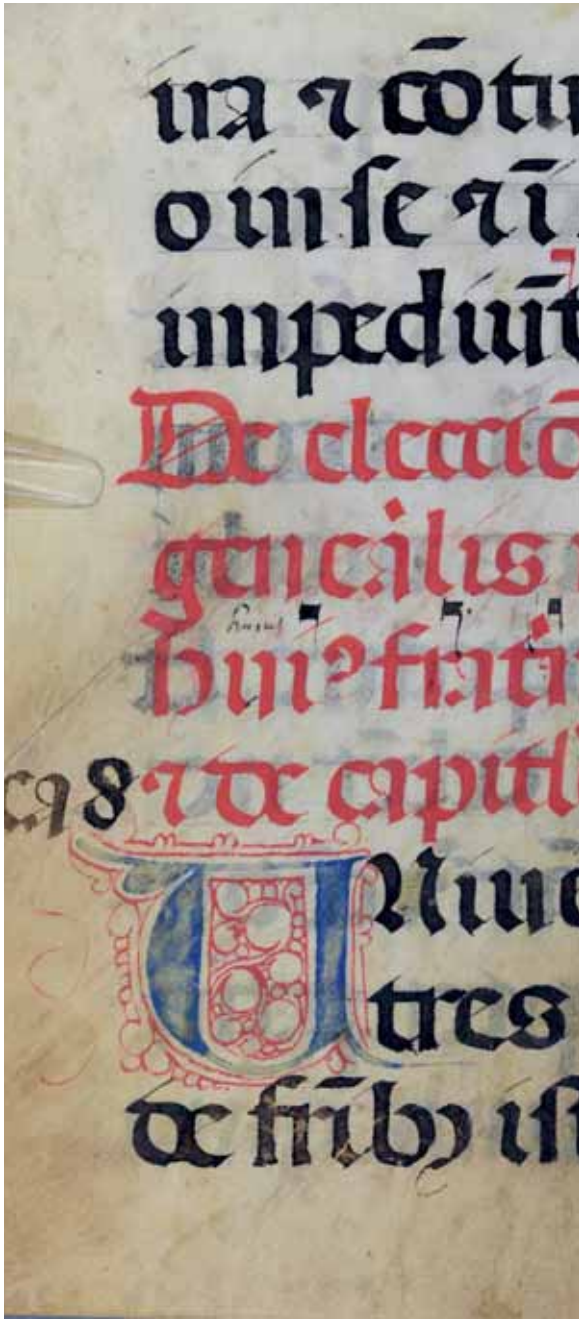 ira ⁊ cōtu
o in se ⁊ ī
impediūt
De elecciō
gen̄ealis
huiꝰ frat̄i
ca 8 ⁊ de capitl
UNiue
tres
de fr̄ibꝫ ist